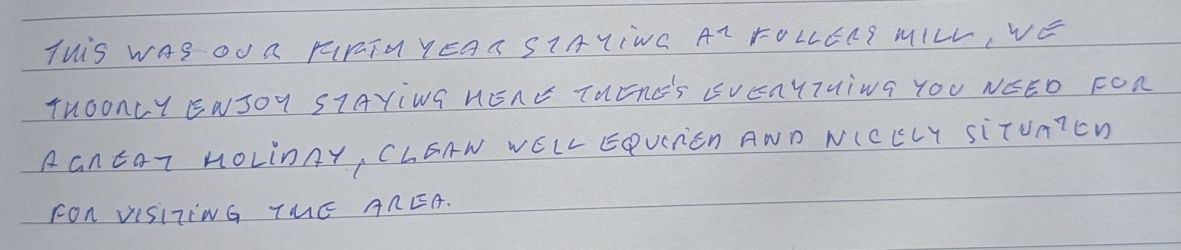 THIS WAS OUR FIFTH YEAR STAYING AT FULLERS MILL, WE
THOONLY ENJOY STAYING HERE THERE'S EVERYTHING YOU NEED FOR
A GREAT HOLIDAY, CLEAN WELL EQUIPED AND NICELY SITUATED
FOR VISITING THE AREA.